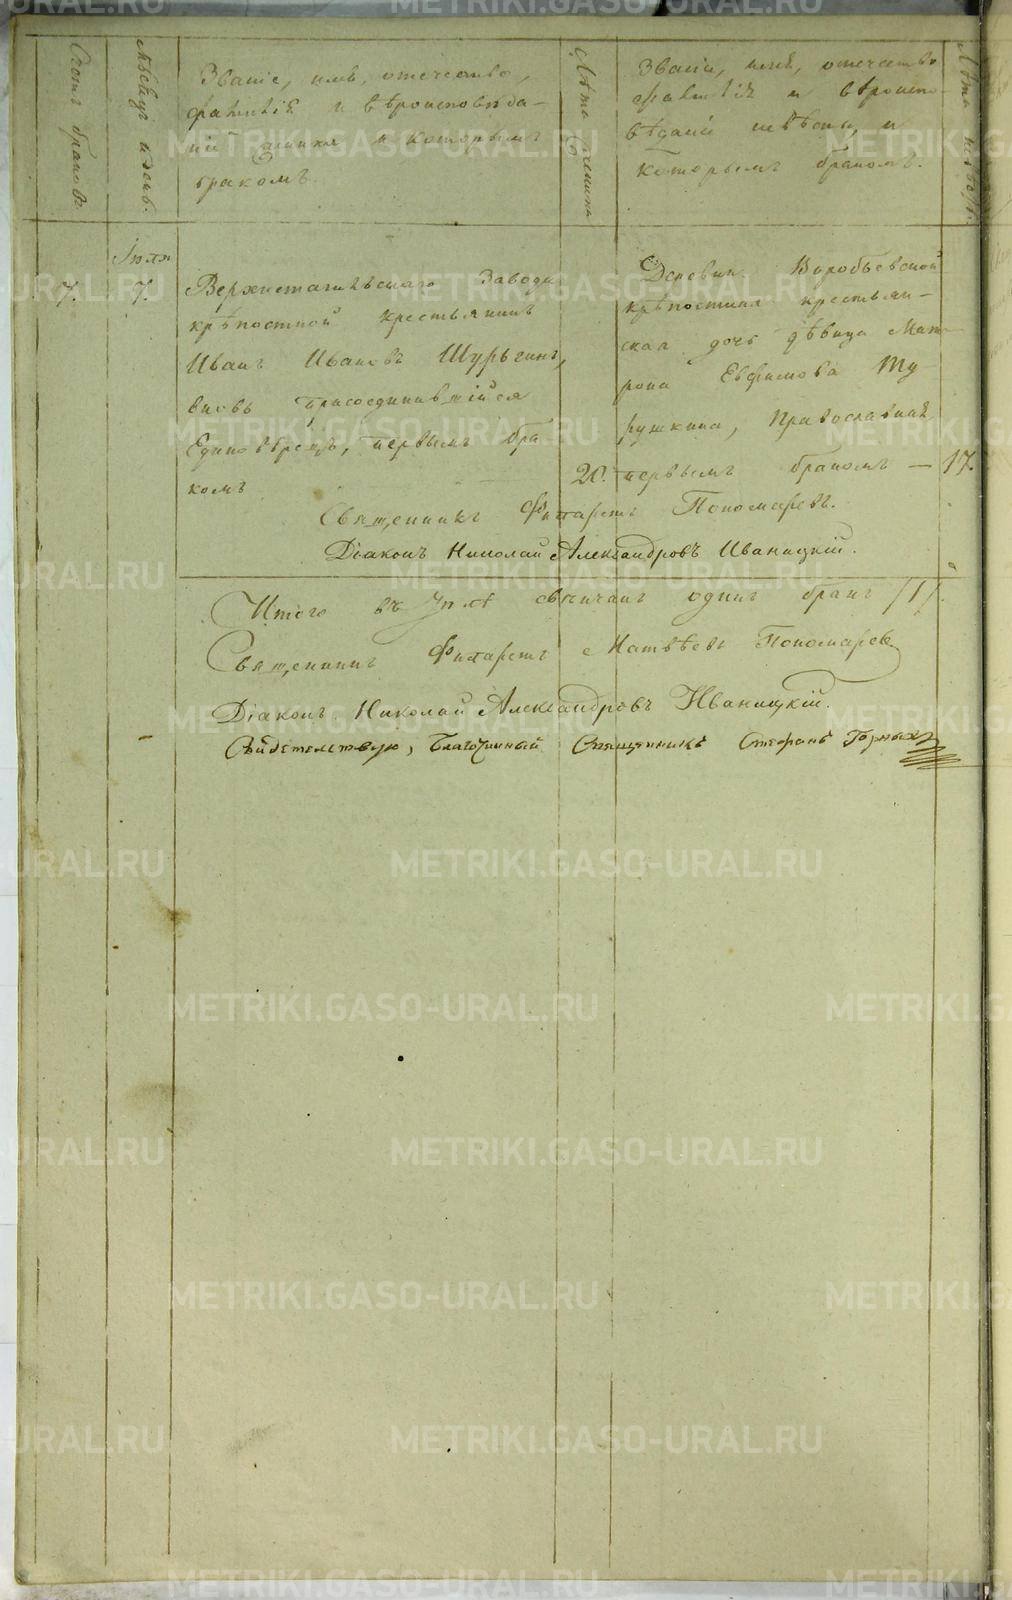 Счетъ браковъ.
Мѣсяцъ и день.
Званіе, имя, отечество,
фамилія и вѣроисповѣда-
ніе жениха и которымъ
бракомъ.
Лѣта жениха
Званіе, имя, отечество
фамилія и вѣроиспо-
вѣданіе невѣсты, и
которымъ бракомъ.
Лѣта невѣсты.
Іюля
7.
7.
Верхнетагильскаго Завода
крѣпостной крестьянинъ
Иванъ Ивановъ Шурыгинъ,
вновь присоединившійся
Единовѣрецъ, первымъ бра-
комъ
20.
Деревни Воробьевской
крѣпостная крестьян-
ская дочь дѣвица Мат-
рона Евфимова Ту-
рушкина, Православная,
первымъ бракомъ — 17.
Священникъ Филаретъ Пономаревъ.
Діаконъ Николай Александровъ Иваницкій.
Итого въ Іюлѣ вѣнчанъ одинъ бракъ /1/.
Священникъ Филаретъ Матвѣевъ Пономаревъ
Діаконъ Николай Александровъ Иваницкій.
Свидетельствую, Благочинный Священникъ Стефанъ Горныхъ
METRIKI.GASO-URAL.RU